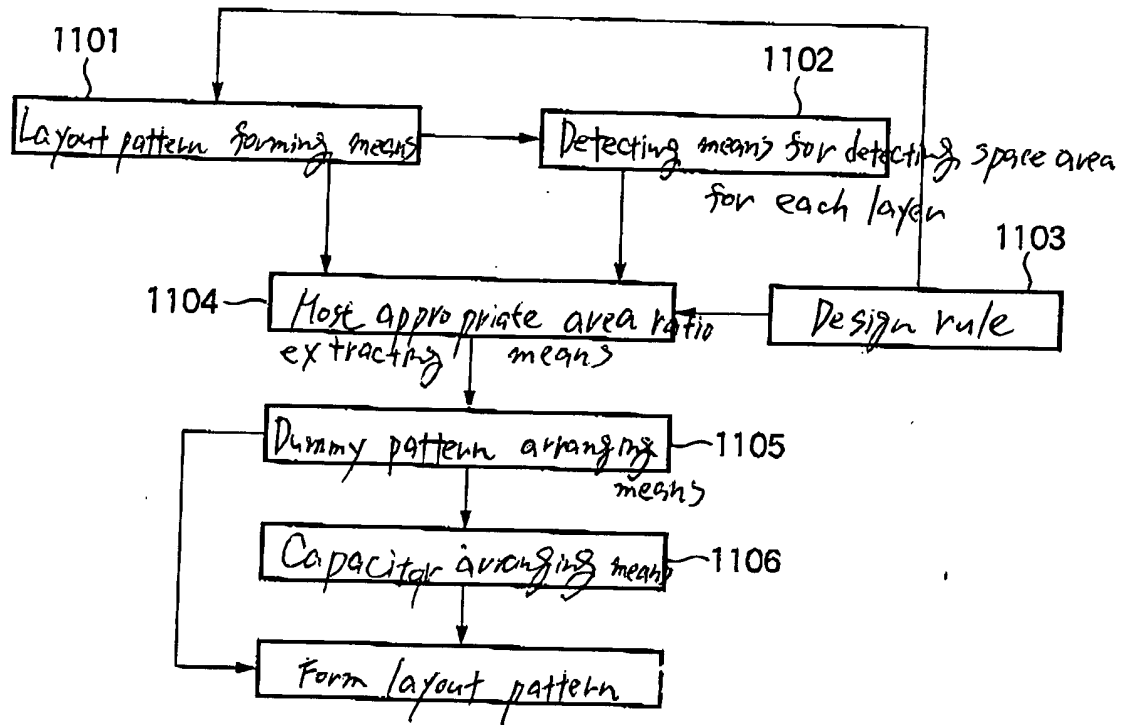 1101
1102
Layout pattern forming means
Detecting means for detecting space area
for each layer
1103
1104
Most appropriate area ratio
extracting means
Design rule
Dummy pattern arranging
means
1105
Capacitor arranging means
1106
Form layout pattern